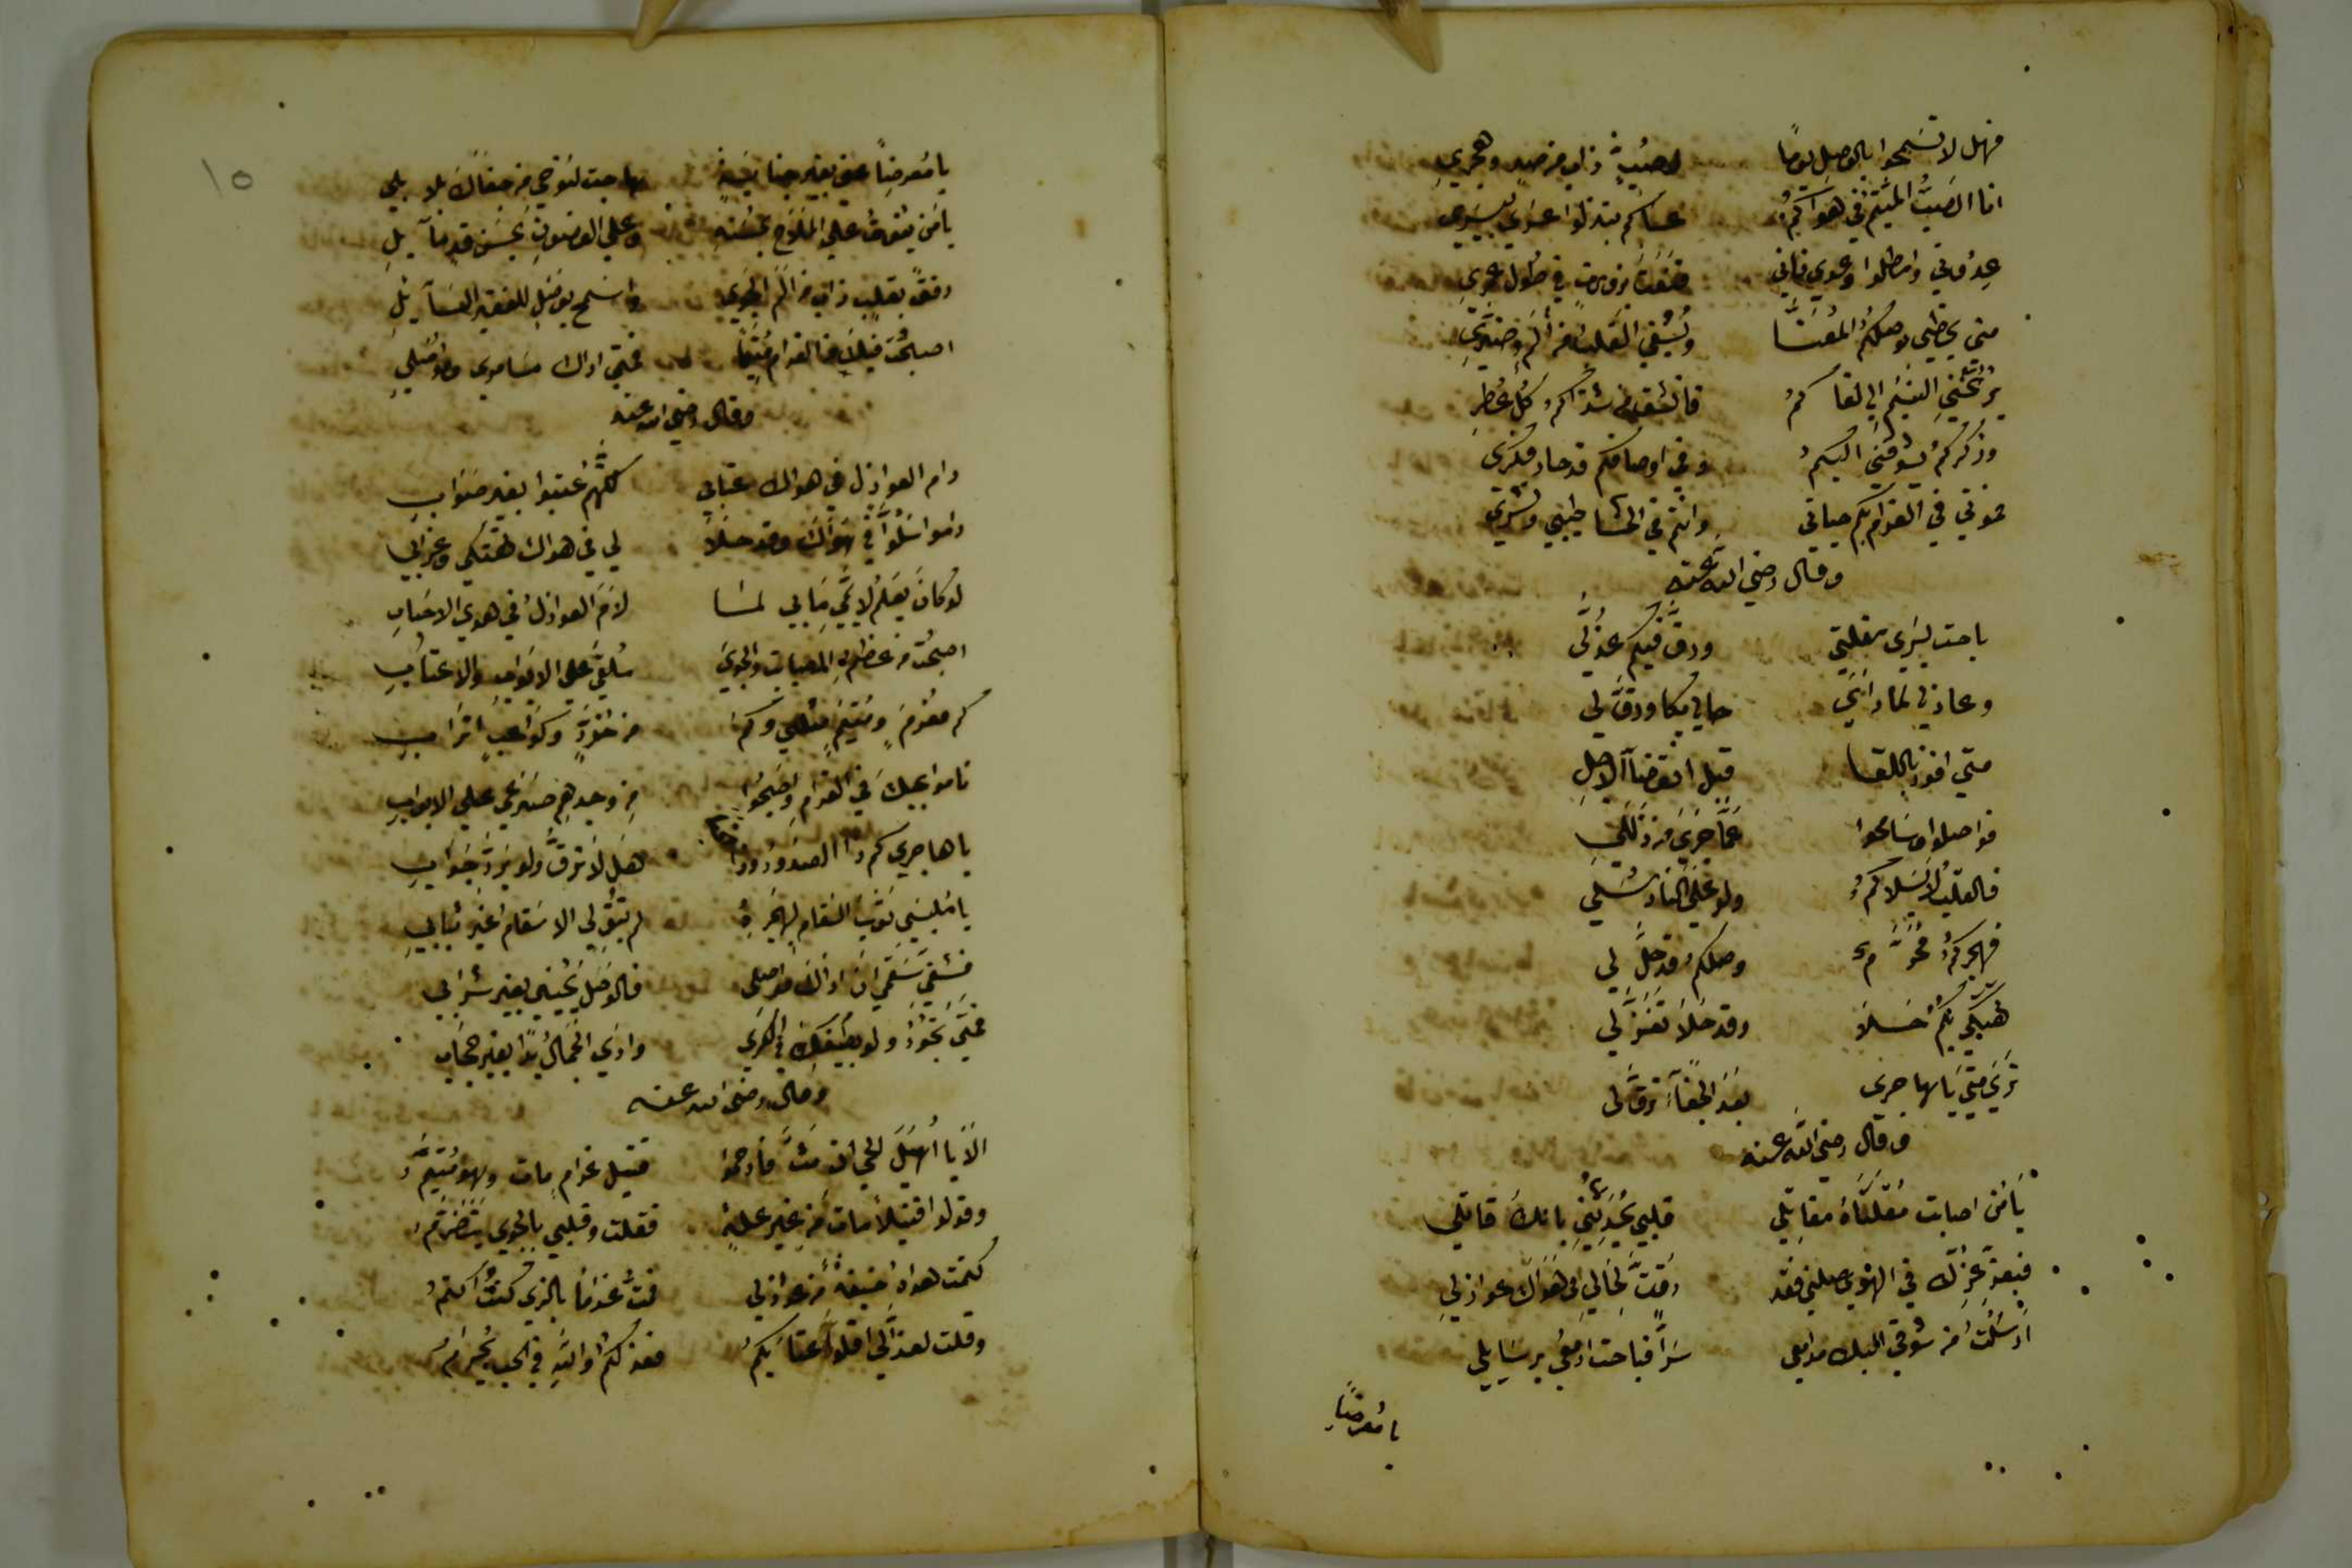 فهل لا تسمحوا بالوصل يومًا لصبٍّ ذاب من صدٍ وهجري
انا الصبُّ المتيّم في هواكمُ عساكم تبدلوا عسري بيسري
عدوني وامطلوا وعدي فاني
متى يحظى بوصلكمُ المُعنَّا ويُشفى القلب من ألم وضرّي
يرنّحني النسيم الي لقاكمُ فانشق من شذاكم كل عطرِ
وذكركمُ يشوقني اليكمُ وفي اوصافكم قد حار فكري
فموتي في الغرام بكم حياتي وانتم في الحشا طيبي ونشري
وقال رضي الله عنه
باحت بسري مقلتي ورقّ فيكم عذّلي
وعاذلي لما رأني حالي بكا ورقّ لي
متي افوز باللقا قبل انقضآ الاجلِ
فواصلوا وسامحوا عمّا جري من زللي
فالقلب لا يسلاكمُ ولو علي النار سُلي
فهجركمُ محرّمٌ ووصلكم قد حلّ لي
تهتكي بكم حلا وقد حلا تغزلي
تري متي يا هاجري بعد الجفآ ترقّ لي
وقال رضي الله عنه
يا من اصابت مقلتاه مقاتلي قلبي يحدثني بانك قاتلي
فبعزّ عزك في الهوي صلني فقد رقّت لحالي في هواك عواذلي
ارسلت من شوقي اليك مدامعي سرًّا فباحت ادمعي برسايلي
يا معرضًا
١٥
يا معرضًا عني بغير جنايةٍ ما حبت لنوحي من جفاك بلا بلي
يا من يفوق علي الملاح بحسنه وعلي الغصون بحسن قدٍ مآيلِ
رفقًا بقلبٍ ذاب من الم الجوي واسمح بوصلٍ للفقير السآيلِ
اصبحت فيك من الغرام متيمًا فمتي اراك مسامري ومواصلي
وقال رضي الله عنه
رام العواذل في هواك عتابي كلهم عتبوا بغير صواب
راموا سلوّا في هواك وقد حلا لي في هواك تهتكي وعذابي
لو كان يعلم لايمي ما بي لمسا لام العواذل في هوي الاحباب
اصبحت من عظم الصبابة والجوي ملقي علي الابواب والاعتاب
كم مغرم ومتيم مثلي وكم من خوّدٍ وكواعبٍ اتراب
ناموا بحبك في الغرام واصبحوا من وجدهم صرعي علي الابواب
يا هاجري كم ذا الصدود وذا الجفا هل لا ترق ولو برد جواب
يا ملبسي ثوب السقام بهجره لم تبق لي الاسقام غير ثيابي
فشفي سقمي ان اراك مواصلي فالوصل يحييني بغير شرابي
فمتى تجود ولو بطيفك في الكري واري الجمال بدا بغير حجاب
وقال رضي الله عنه
الا يا اهيل الحي ان متّ فارحموا قتيل غرامٍ مات وهو متيّمُ
وقولوا قتيلا مات من غير علةٍ فقلت وقلبي بالجوي يتضرمُ
كتمت هواه خيفةً من عواذلي فمتُّ غرامًا بالذي كنت اكتمُ
وقلت لعذّالي اقلوا عتابكمُ فعذلكمُ والله في الحب يحرمُ